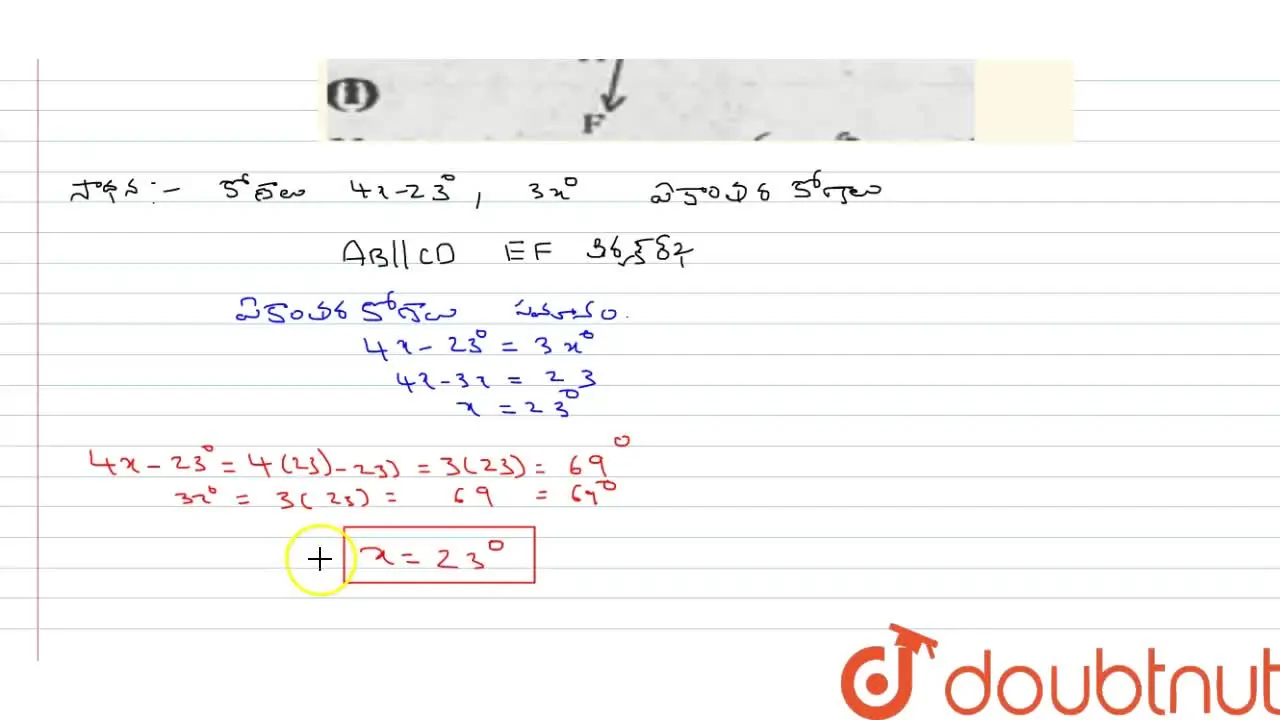 (i)
F
సాధన :- కోణాలు 4x-23°, 3x° ఏకాంతర కోణాలు
AB||CD EF తిర్యక్‌రేఖ
ఏకాంతర కోణాలు సమానం.
4x-23° = 3x°
4x-3x = 23
x = 23°
4x-23° = 4(23)-23) = 3(23) = 69°
3x° = 3(23) = 69 = 69°
x = 23°
doubtnut